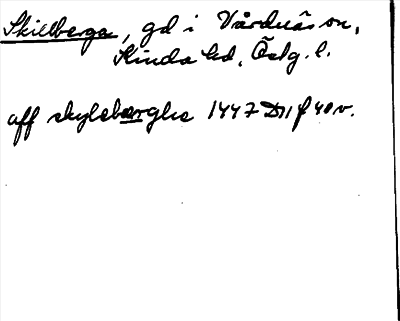 Skillberga, gd i Vårdnäs sn,
Kinda hd, Östg. l.
aff skylsbærghe 1447 D11 f 40 v.